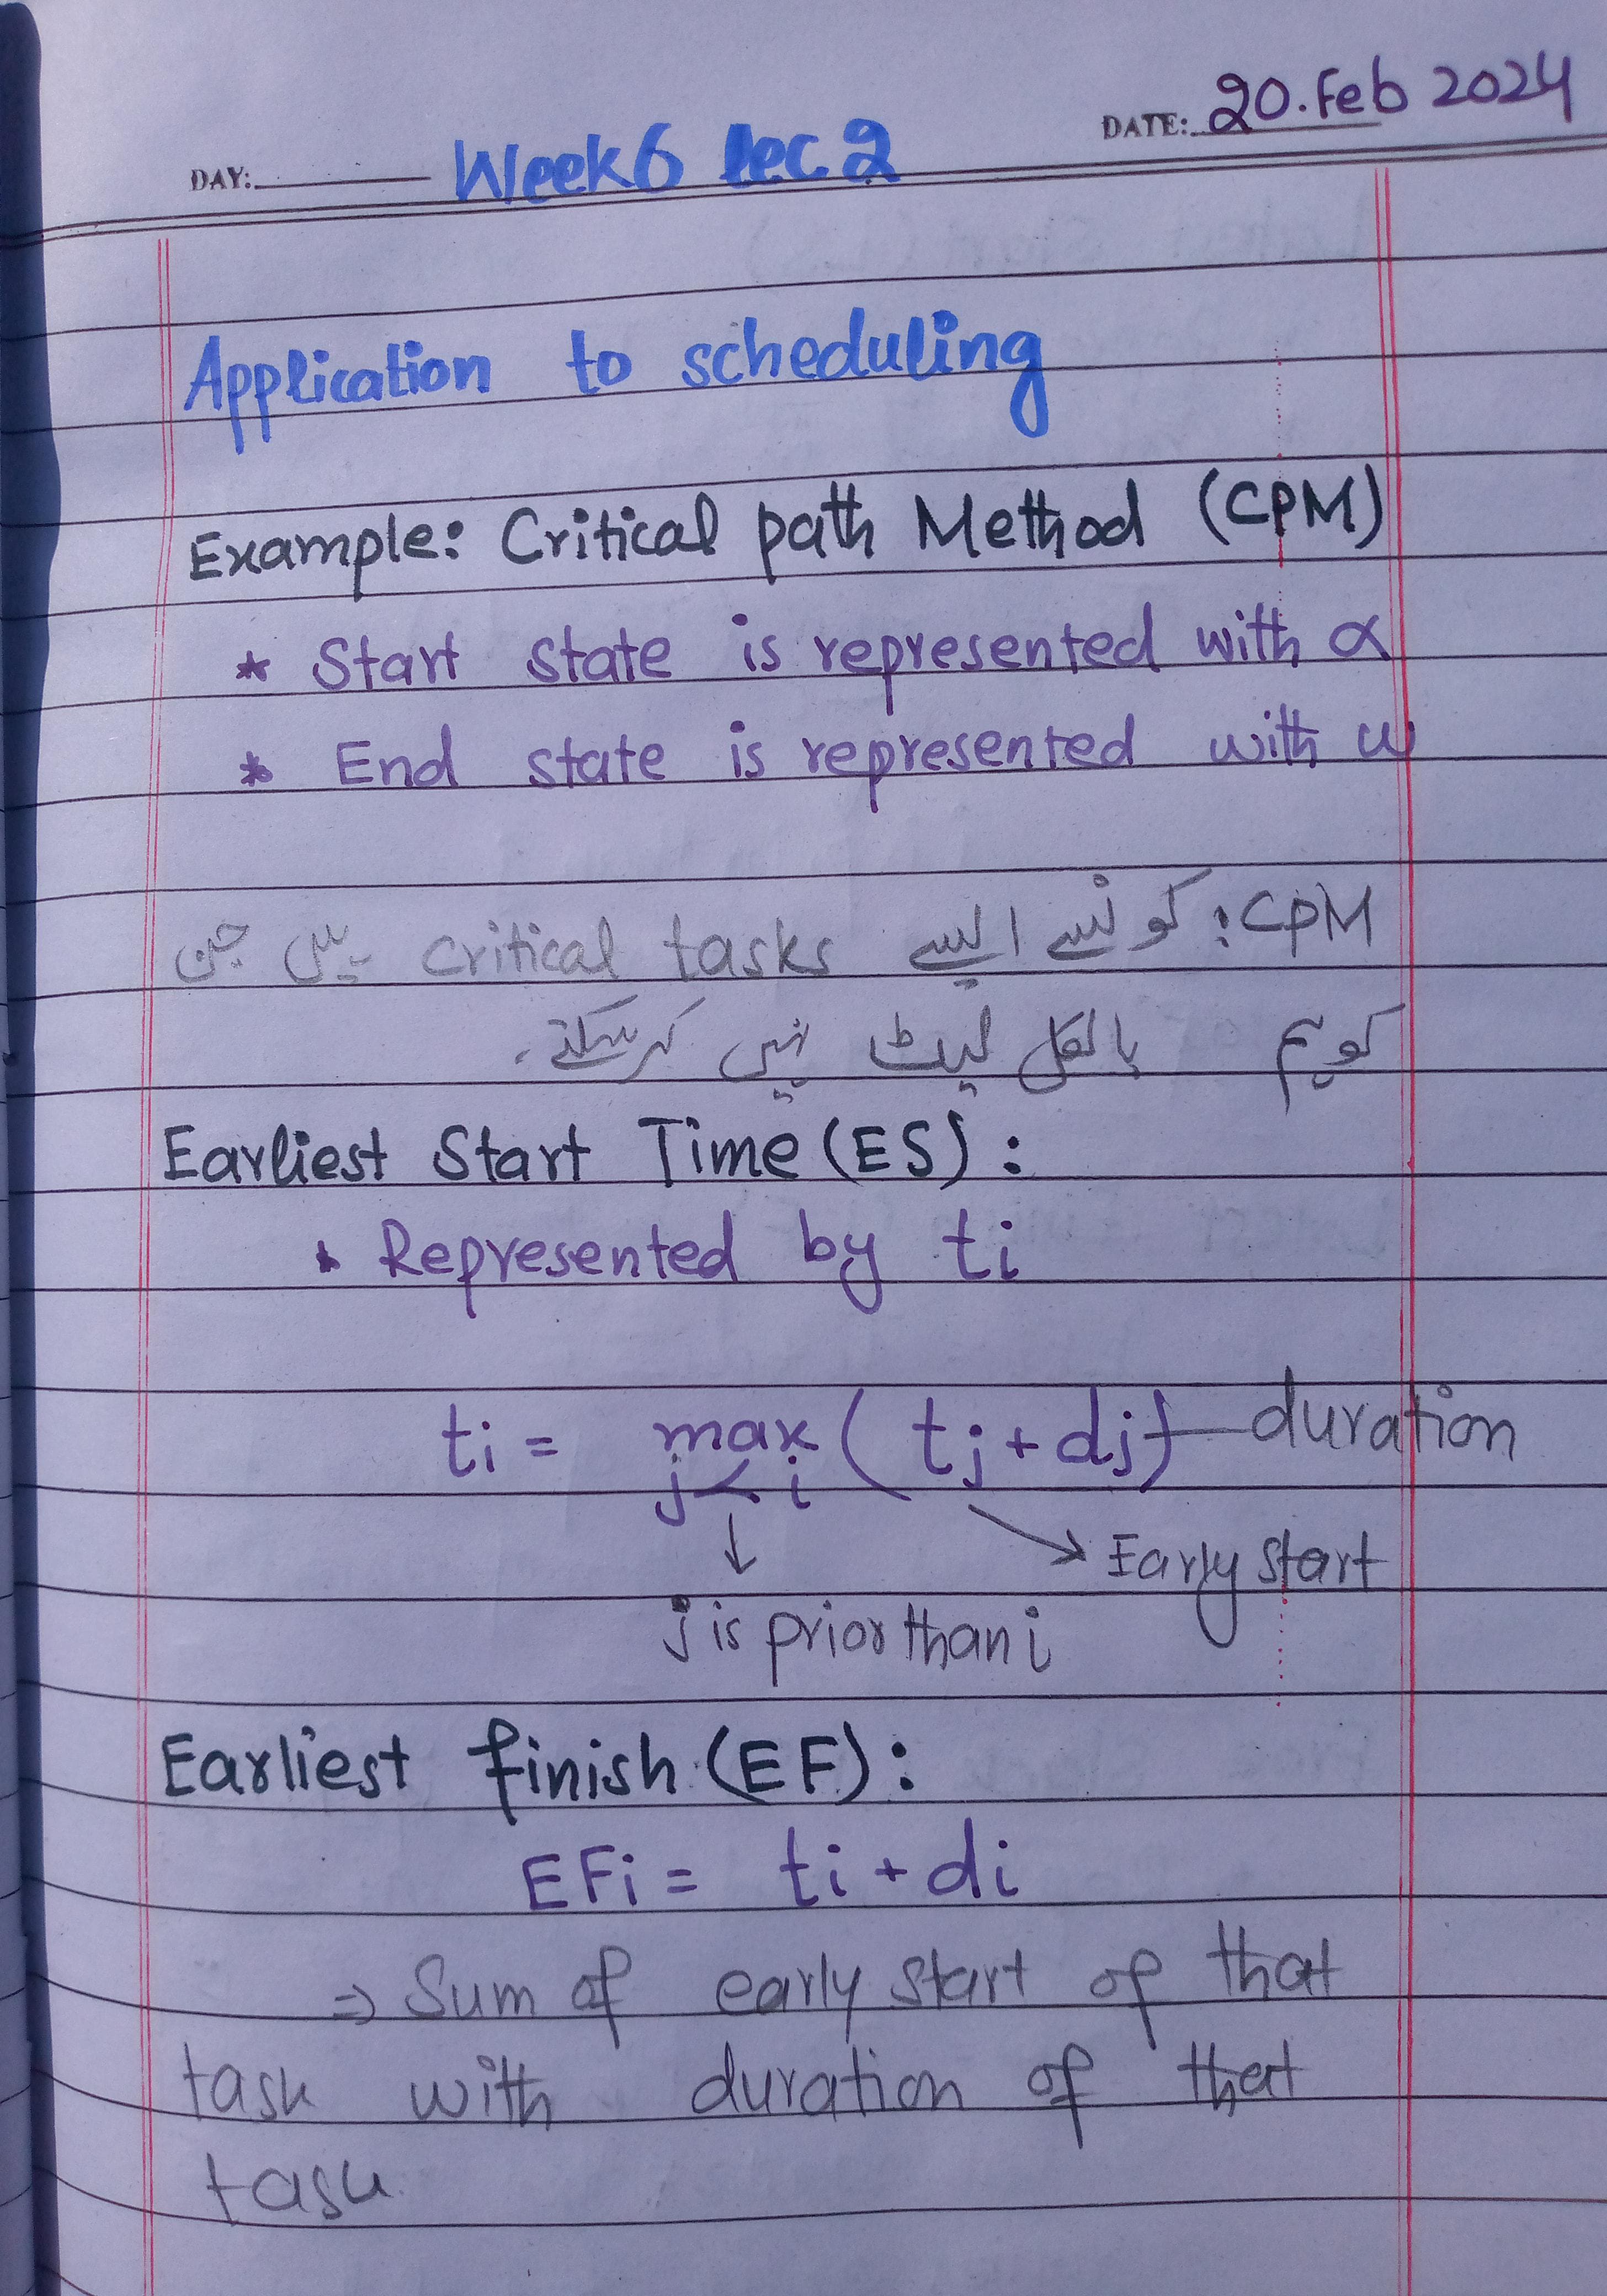 DATE: 20.Feb 2024
DAY: Week6 lec 2
Application to scheduling
Example: Critical path Method (CPM)
* Start state is represented with α
* End state is represented with ω
CPM: کونسے ایسے critical tasks ہیں جن
کو ہم بالکل لیٹ نہیں کرسکتے۔
Earliest Start Time (ES):
* Represented by ti
ti = max (tj + dj) duration
j < i
Early start
j is prior than i
Earliest finish (EF):
EFi = ti + di
⇒ Sum of early start of that
task with duration of that
task